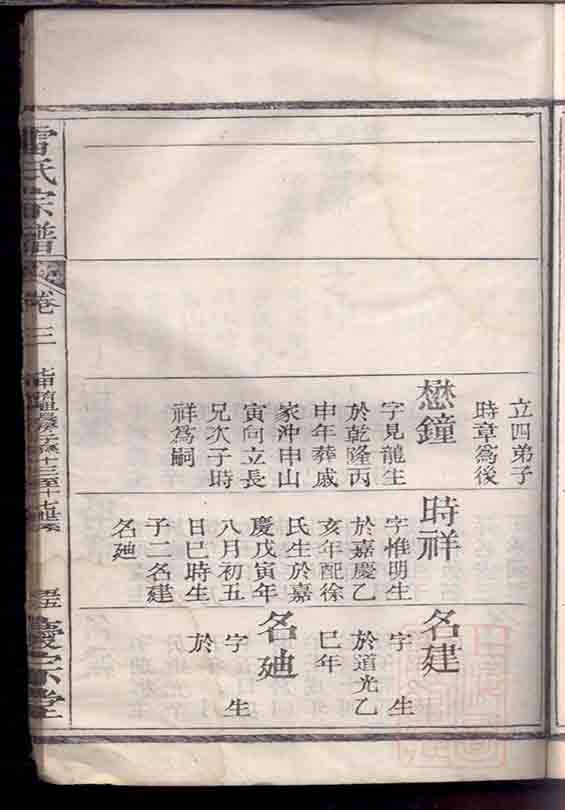 立四弟子
時章爲後
懋鐘
字見龍生
於乾隆丙
申年葬戚
家沖申山
寅向立長
兄次子時
祥爲嗣
時祥
字惟明生
於嘉慶乙
亥年配徐
氏生於嘉
慶戊寅年
八月初五
日巳時生
子二名建
名廸
名建
字 生
於道光乙
巳年
名廸
字 生
於
雷氏宗譜
卷三
慶宗堂